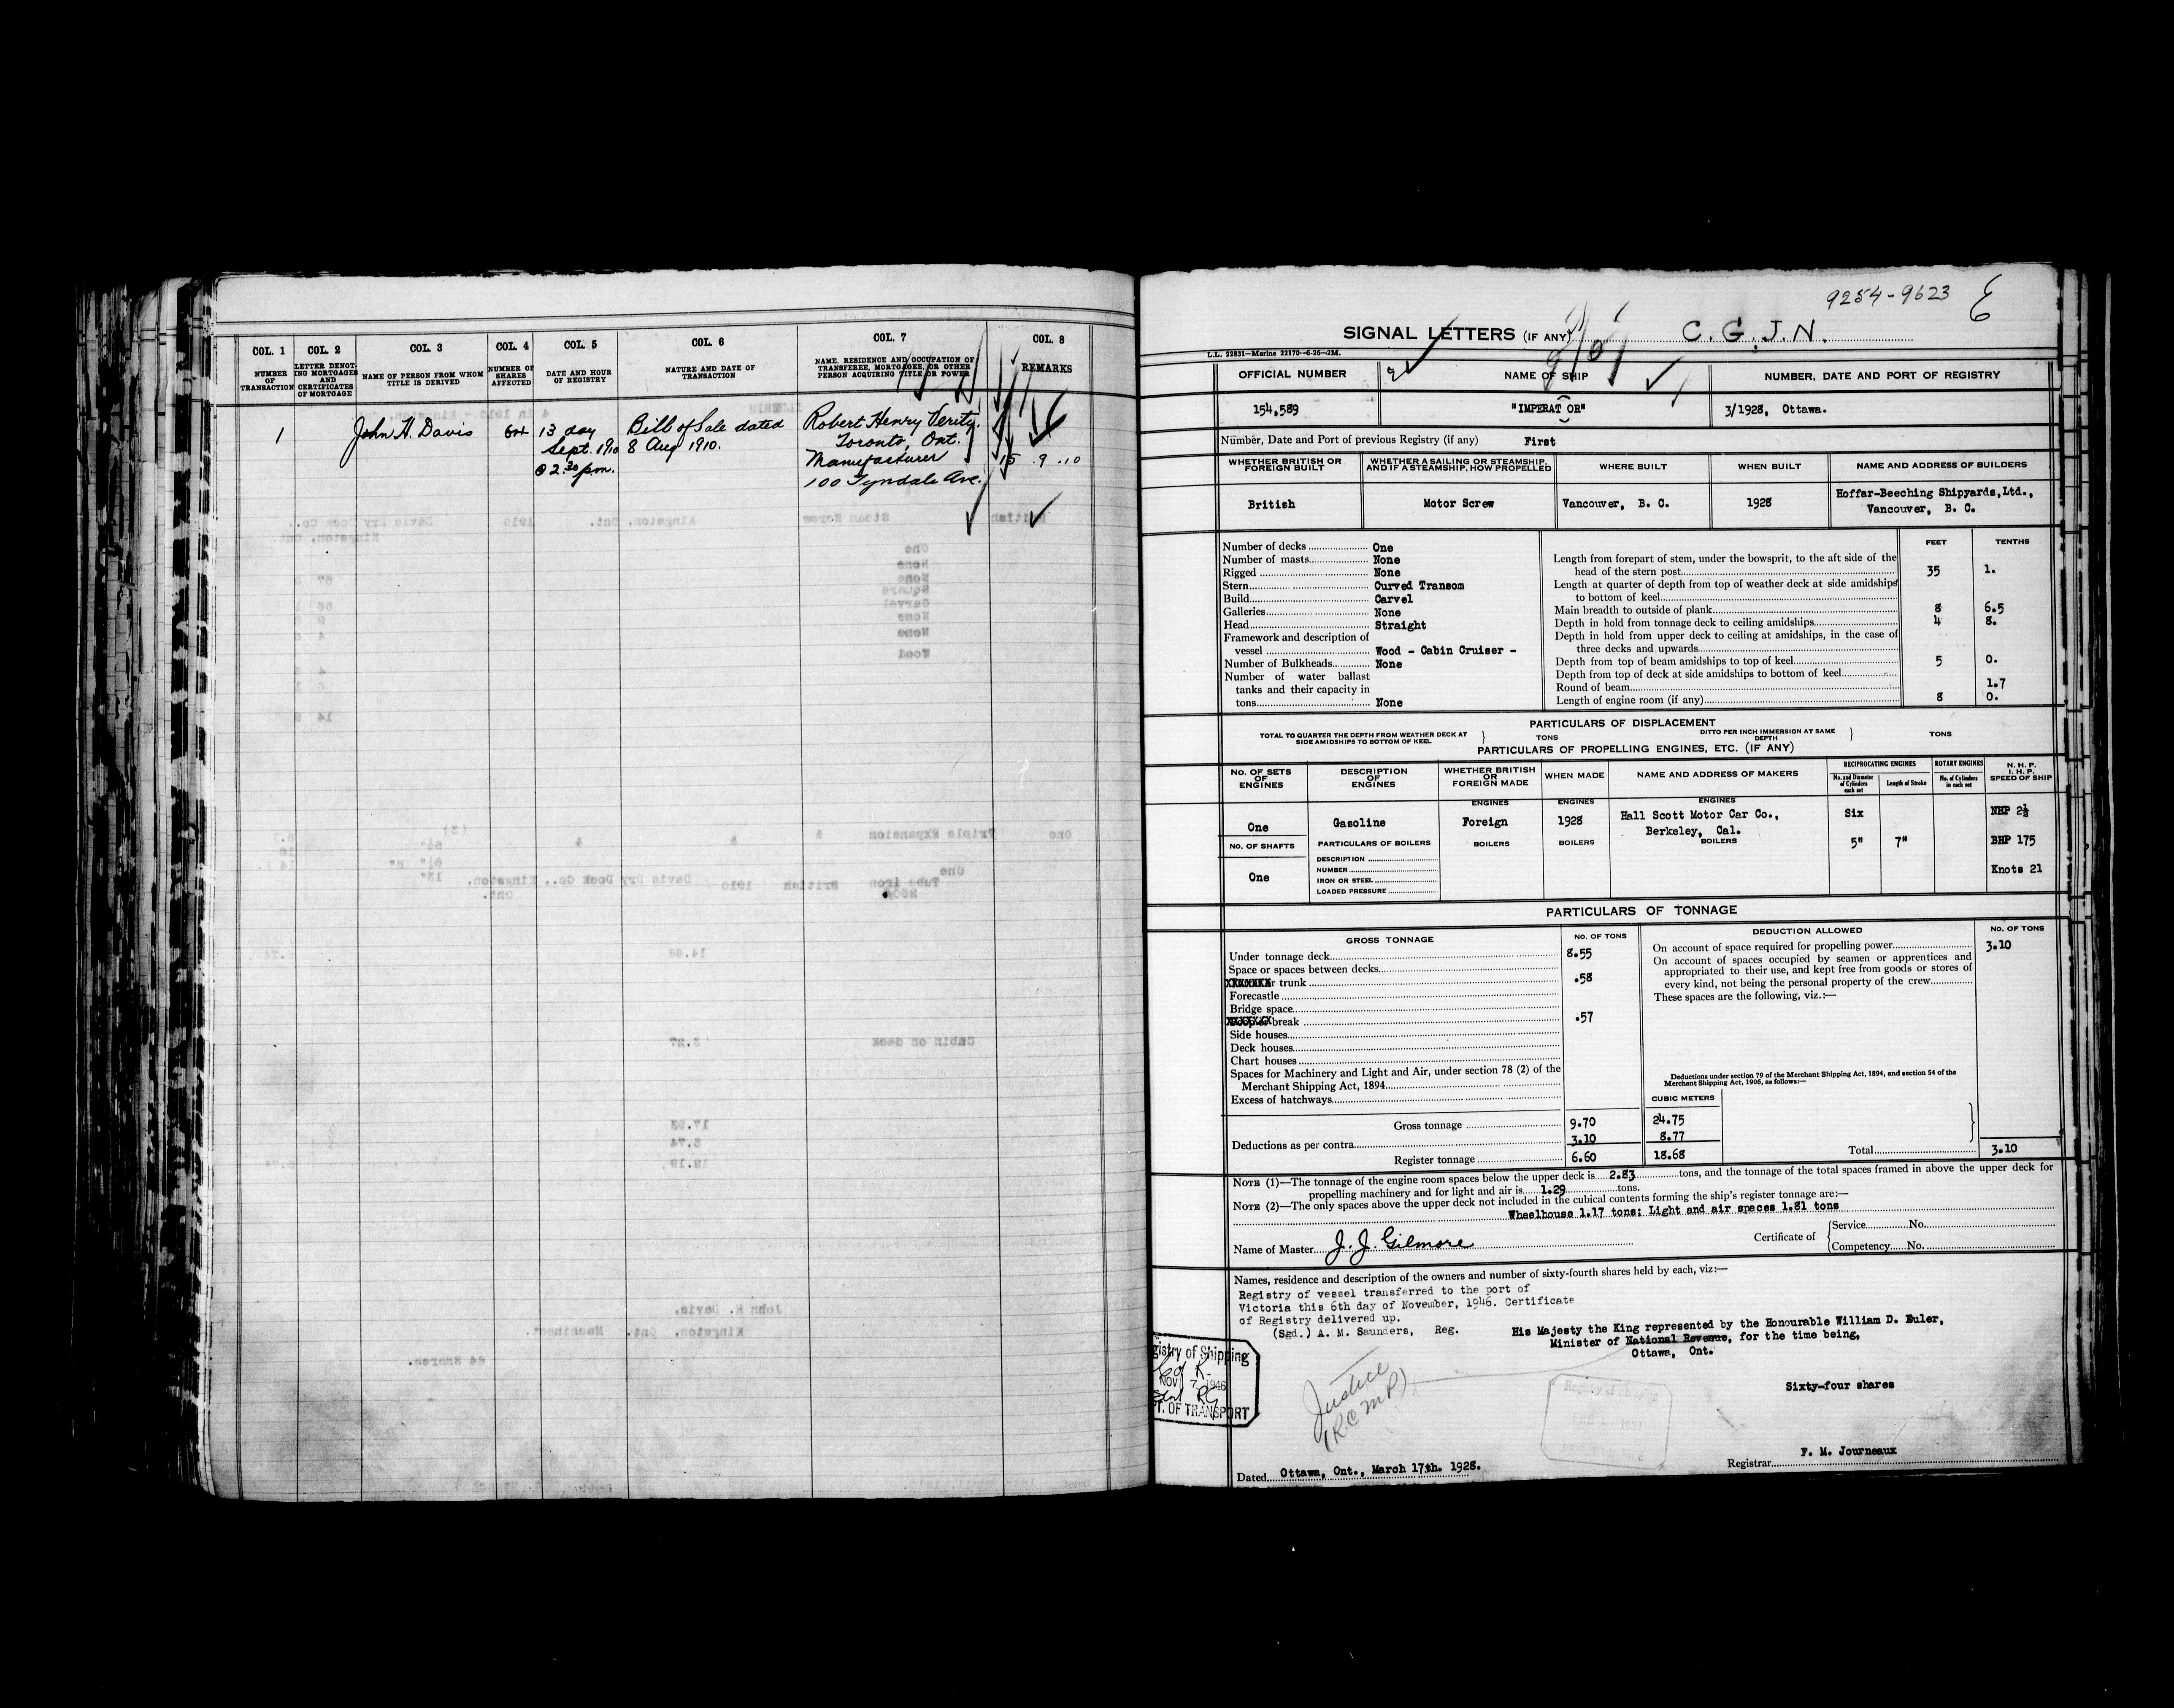 COL. 1 COL. 2 COL. 3 COL. 4 COL. 5 COL. 6 COL. 7 COL. 8
NUMBER OF TRANSACTION
LETTER DENOTING MORTGAGES AND CERTIFICATES OF MORTGAGE
NAME OF PERSON FROM WHOM TITLE IS DERIVED
NUMBER OF SHARES AFFECTED
DATE AND HOUR OF REGISTRY
NATURE AND DATE OF TRANSACTION
NAME, RESIDENCE AND OCCUPATION OF TRANSFEREE, MORTGAGEE, OR OTHER PERSON ACQUIRING TITLE OR POWER
REMARKS
1 John H. Davis 64 13 day Bill of Sale dated Robert Henry Verity.
Sept. 1910 8 Aug 1910. Toronto, Ont.
@ 2.30 p.m. Manufacturer 15 . 9 . 10
100 Tyndale Ave.
9254-9623 E
SIGNAL LETTERS (IF ANY) C. G. J. N.
L.L. 22831—Marine 22170—6-26—2M.
OFFICIAL NUMBER NAME OF SHIP NUMBER, DATE AND PORT OF REGISTRY
154,589 "IMPERATOR" 3/1928, Ottawa.
Number, Date and Port of previous Registry (if any) First
WHETHER BRITISH OR FOREIGN BUILT
WHETHER A SAILING OR STEAMSHIP, AND IF A STEAMSHIP, HOW PROPELLED
WHERE BUILT WHEN BUILT NAME AND ADDRESS OF BUILDERS
British Motor Screw Vancouver, B. C. 1928 Hoffar-Beeching Shipyards,Ltd.,
Vancouver, B. C.
FEET TENTHS
Number of decks One
Number of masts None
Rigged None
Stern Curved Transom
Build Carvel
Galleries None
Head Straight
Framework and description of
vessel Wood - Cabin Cruiser -
Number of Bulkheads None
Number of water ballast
tanks and their capacity in
tons None
Length from forepart of stem, under the bowsprit, to the aft side of the
head of the stern post 35 1.
Length at quarter of depth from top of weather deck at side amidships
to bottom of keel
Main breadth to outside of plank 8 6.5
Depth in hold from tonnage deck to ceiling amidships 4 8.
Depth in hold from upper deck to ceiling at amidships, in the case of
three decks and upwards
Depth from top of beam amidships to top of keel 5 0.
Depth from top of deck at side amidships to bottom of keel
Round of beam 1.7
Length of engine room (if any) 8 0.
PARTICULARS OF DISPLACEMENT
TOTAL TO QUARTER THE DEPTH FROM WEATHER DECK AT SIDE AMIDSHIPS TO BOTTOM OF KEEL } TONS DITTO PER INCH IMMERSION AT SAME DEPTH } TONS
PARTICULARS OF PROPELLING ENGINES, ETC. (IF ANY)
NO. OF SETS OF ENGINES
DESCRIPTION OF ENGINES
WHETHER BRITISH OR FOREIGN MADE
WHEN MADE
NAME AND ADDRESS OF MAKERS
RECIPROCATING ENGINES
No. and Diameter of Cylinders each set
Length of Stroke
ROTARY ENGINES
No. of Cylinders in each set
N. H. P.
I. H. P.
SPEED OF SHIP
ENGINES ENGINES ENGINES
One Gasoline Foreign 1928 Hall Scott Motor Car Co., Six NHP 2½
Berkeley, Cal.
NO. OF SHAFTS PARTICULARS OF BOILERS BOILERS BOILERS BOILERS 5" 7" BHP 175
DESCRIPTION
NUMBER
One Knots 21
IRON OR STEEL
LOADED PRESSURE
PARTICULARS OF TONNAGE
GROSS TONNAGE NO. OF TONS DEDUCTION ALLOWED NO. OF TONS
Under tonnage deck 8.55
Space or spaces between decks
r trunk .58
Forecastle
Bridge space
break .57
Side houses
Deck houses
Chart houses
Spaces for Machinery and Light and Air, under section 78 (2) of the
Merchant Shipping Act, 1894
Excess of hatchways
On account of space required for propelling power 3.10
On account of spaces occupied by seamen or apprentices and
appropriated to their use, and kept free from goods or stores of
every kind, not being the personal property of the crew
These spaces are the following, viz.:—
Deductions under section 79 of the Merchant Shipping Act, 1894, and section 54 of the
Merchant Shipping Act, 1906, as follows:—
CUBIC METERS
Gross tonnage 9.70 24.75
Deductions as per contra 3.10 8.77
Register tonnage 6.60 18.68 Total 3.10
NOTE (1)—The tonnage of the engine room spaces below the upper deck is 2.83 tons, and the tonnage of the total spaces framed in above the upper deck for
propelling machinery and for light and air is 1.29 tons.
NOTE (2)—The only spaces above the upper deck not included in the cubical contents forming the ship's register tonnage are:—
Wheelhouse 1.17 tons: Light and air spaces 1.81 tons
Name of Master J. J. Gilmore Certificate of { Service No.
Competency No.
Names, residence and description of the owners and number of sixty-fourth shares held by each, viz:—
Registry of vessel transferred to the port of
Victoria this 6th day of November, 1946. Certificate
of Registry delivered up.
(Sgd.) A. M. Saunders, Reg.
His Majesty the King represented by the Honourable William D. Euler,
Minister of National Revenue, for the time being,
Ottawa, Ont.
Justice
(R C M P)
gistry of Shipping
NOV 7 1946
T. OF TRANSPORT
Sixty-four shares
Dated Ottawa, Ont., March 17th. 1928.
F. M. Journeaux
Registrar